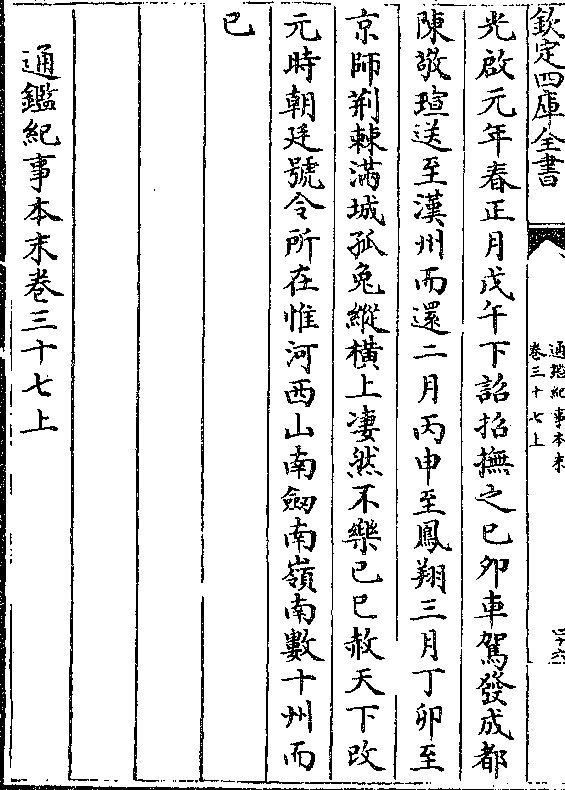 欽定四庫全書
通鑑紀事本末
卷三十七上
光啟元年春正月戊午下詔招撫之己卯車駕發成都
陳敬瑄送至漢州而還二月丙申至鳳翔三月丁卯至
京師荆棘滿城孤兔縱橫上凄然不樂己巳赦天下改
元時朝廷號令所在惟河西山南劒南嶺南數十州而
已
通鑑紀事本末卷三十七上